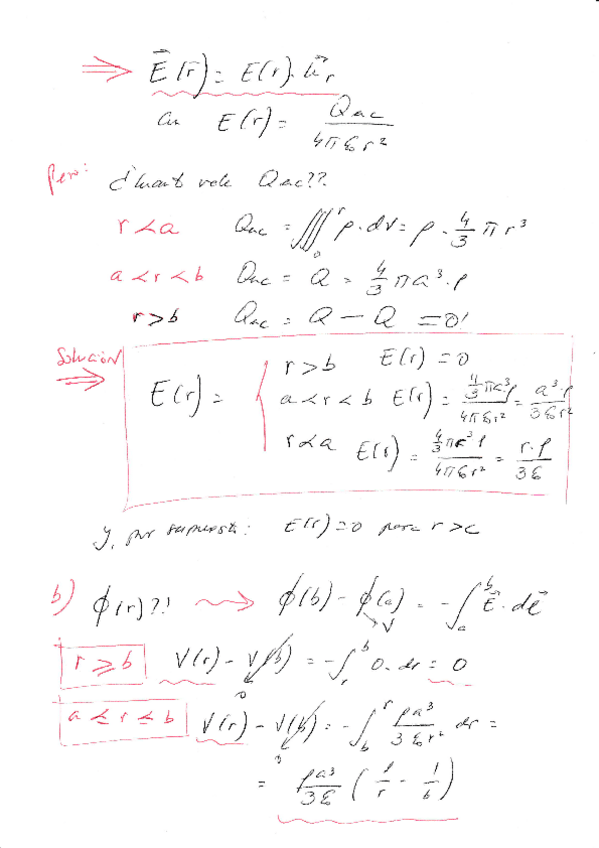 ⟹ E⃗(r⃗) = E(r)·u⃗r
E(r) = Qenc / 4πε₀r²
Pero: ¿Cuanto vale Qenc??
r < a Qenc = ∭₀ʳ ρ·dV = ρ·4/3 πr³
a < r < b Qenc = Q = 4/3 πa³·ρ
r > b Qenc = Q − Q = 0!
Solución
⟹ E(r) = {
r > b E(r) = 0
a < r < b E(r) = 4/3 πa³ρ / 4πε₀r² = a³·ρ / 3ε₀r²
r < a E(r) = 4/3 πr³ρ / 4πε₀r² = r·ρ / 3ε₀
Y, por supuesto: E(r) = 0 para r > c
b) ϕ(r)?! ⇝ ϕ(b) − ϕ(a) = −∫ₐᵇ E⃗·dl⃗
V
r ⩾ b V(r) − V(b) = −∫ᵣᵇ 0·dr = 0
0
a ≤ r ≤ b V(r) − V(b) = −∫_b^r ρa³ / 3ε₀r² dr =
0
= ρa³/3ε₀ (1/r − 1/b)